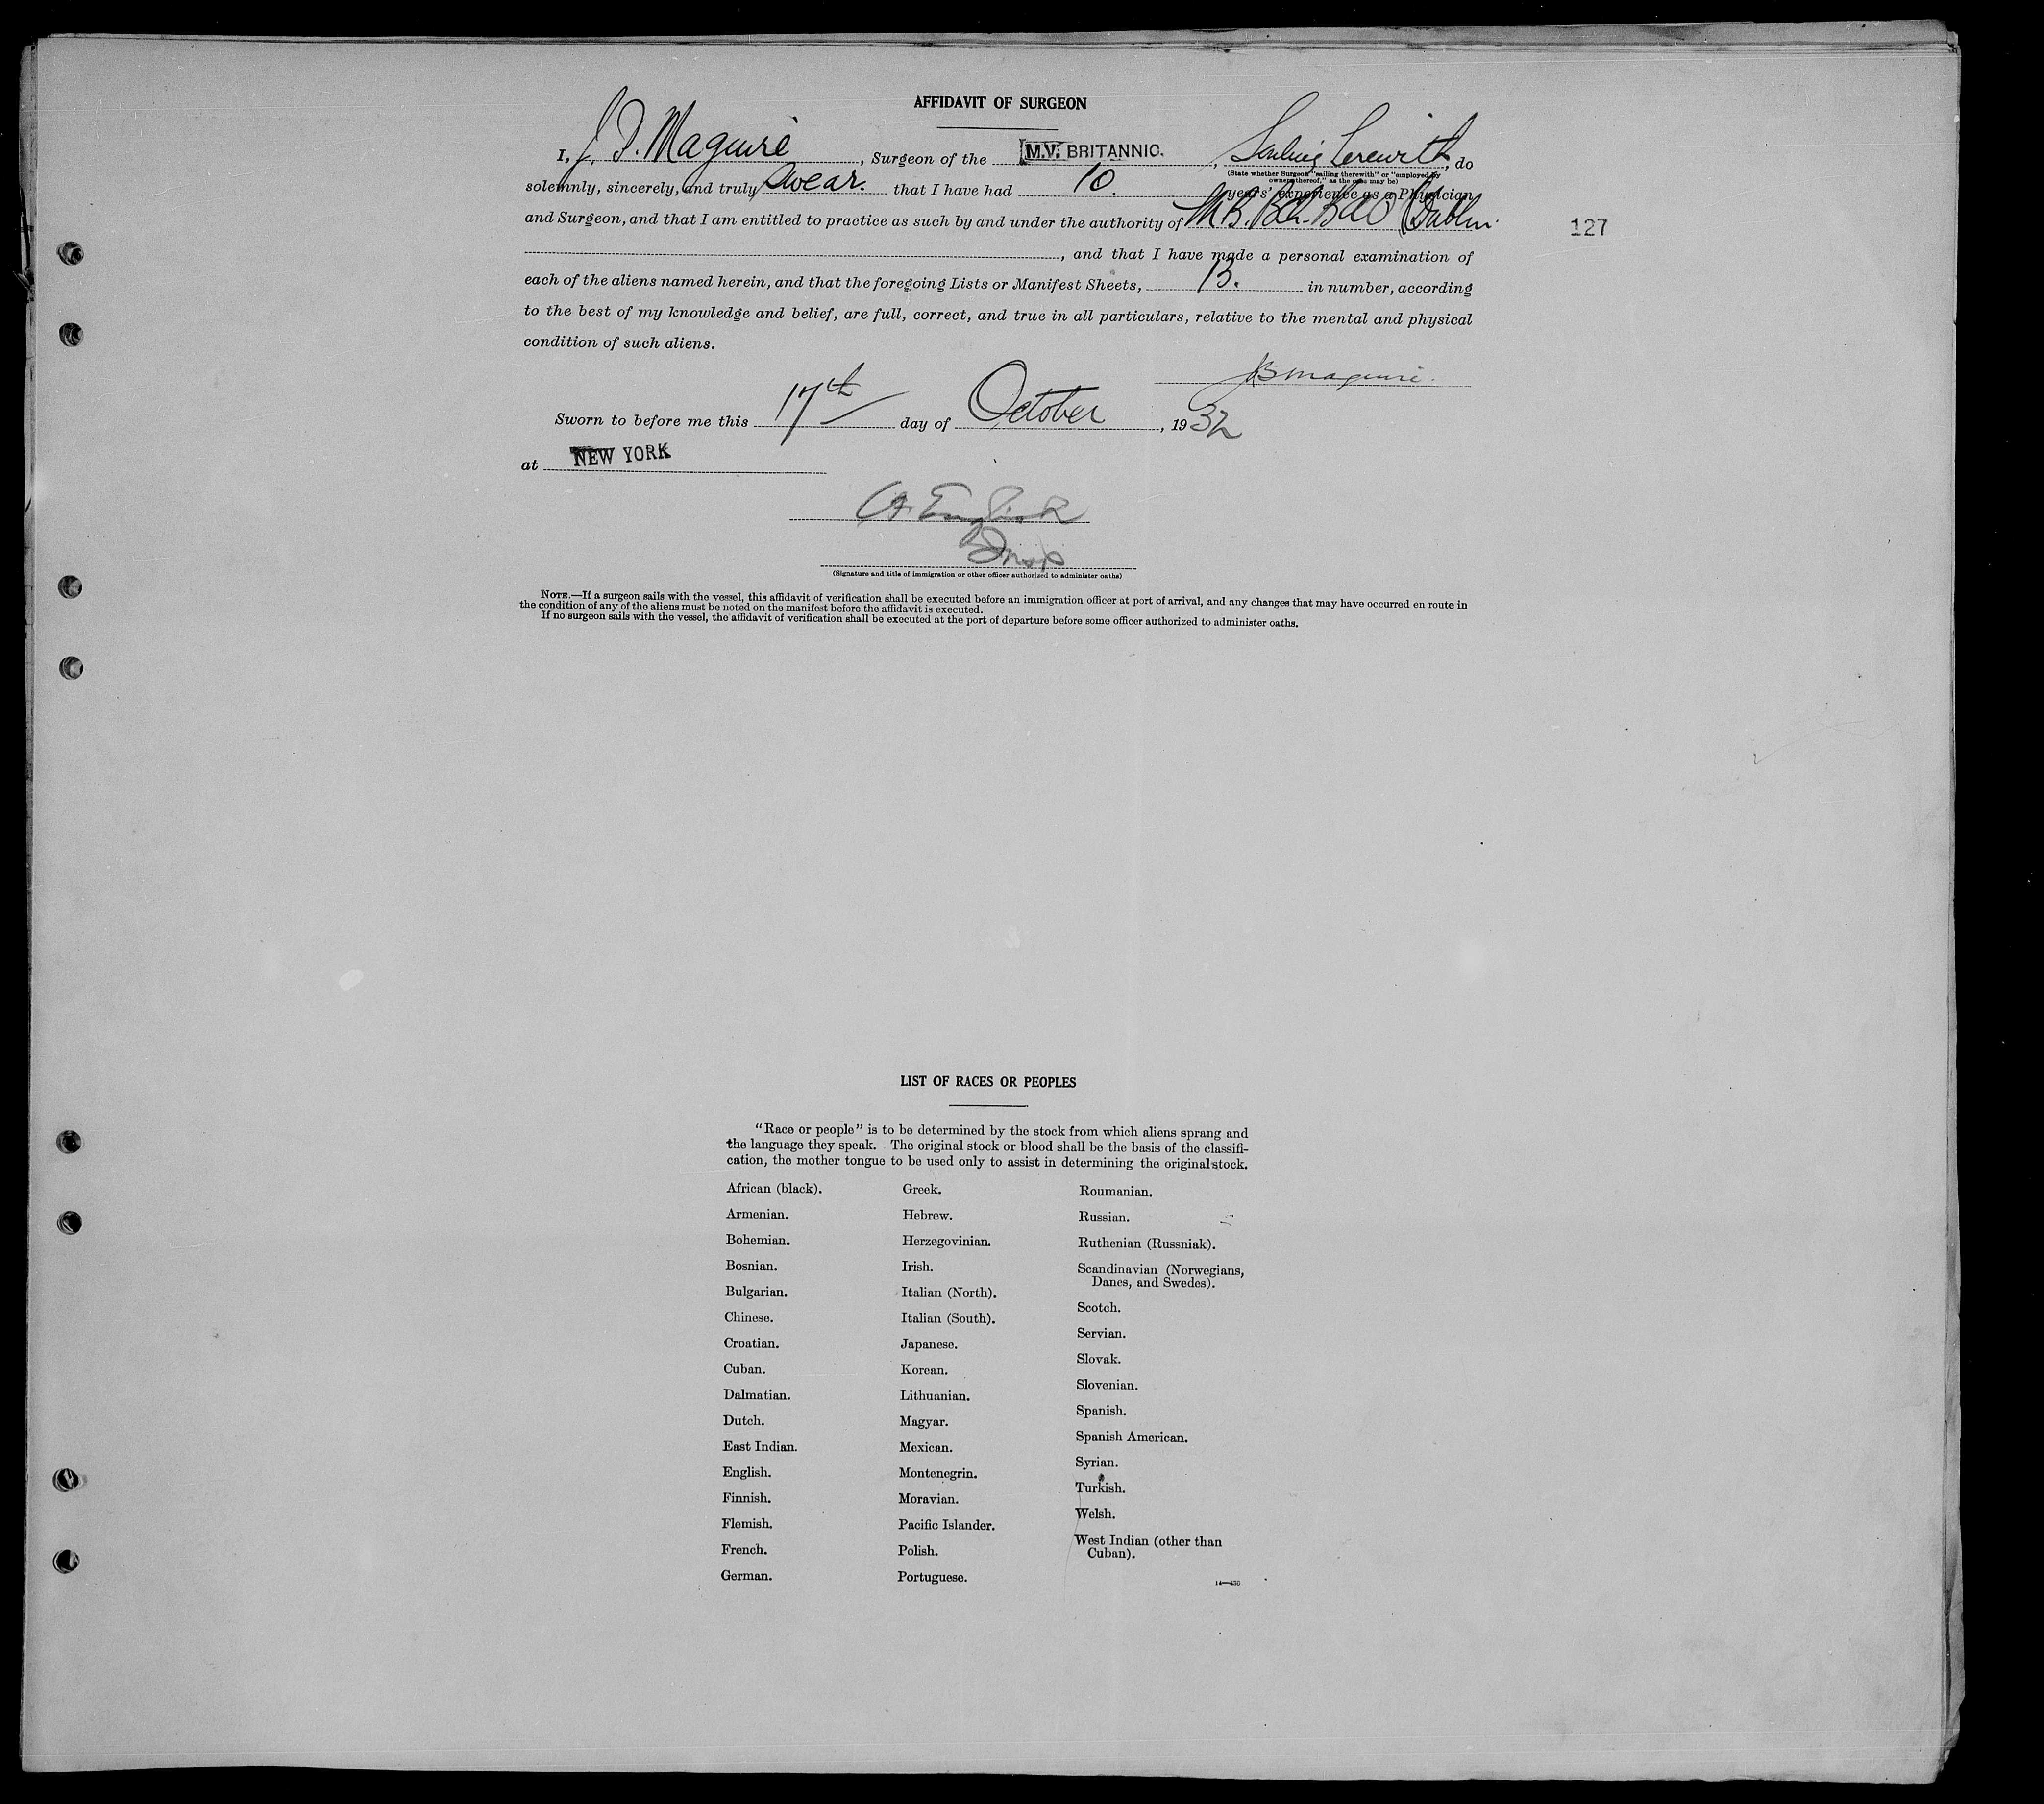 AFFIDAVIT OF SURGEON
I, J. D. Maguire, Surgeon of the M.V. BRITANNIC., Sailing herewith, do
(State whether Surgeon "sailing therewith" or "employed by
owners thereof," as the case may be)
solemnly, sincerely, and truly swear. that I have had 10. years' experience as a Physician
and Surgeon, and that I am entitled to practice as such by and under the authority of M.B. Bch. BAO (Dublin
127
, and that I have made a personal examination of
each of the aliens named herein, and that the foregoing Lists or Manifest Sheets, 13. in number, according
to the best of my knowledge and belief, are full, correct, and true in all particulars, relative to the mental and physical
condition of such aliens.
Maguire.
Sworn to before me this 17th day of October, 1932
at NEW YORK
English
Insp
(Signature and title of immigration or other officer authorized to administer oaths)
NOTE.—If a surgeon sails with the vessel, this affidavit of verification shall be executed before an immigration officer at port of arrival, and any changes that may have occurred en route in
the condition of any of the aliens must be noted on the manifest before the affidavit is executed.
If no surgeon sails with the vessel, the affidavit of verification shall be executed at the port of departure before some officer authorized to administer oaths.
LIST OF RACES OR PEOPLES
"Race or people" is to be determined by the stock from which aliens sprang and
the language they speak. The original stock or blood shall be the basis of the classifi-
cation, the mother tongue to be used only to assist in determining the original stock.
African (black).
Armenian.
Bohemian.
Bosnian.
Bulgarian.
Chinese.
Croatian.
Cuban.
Dalmatian.
Dutch.
East Indian.
English.
Finnish.
Flemish.
French.
German.
Greek.
Hebrew.
Herzegovinian.
Irish.
Italian (North).
Italian (South).
Japanese.
Korean.
Lithuanian.
Magyar.
Mexican.
Montenegrin.
Moravian.
Pacific Islander.
Polish.
Portuguese.
Roumanian.
Russian.
Ruthenian (Russniak).
Scandinavian (Norwegians,
Danes, and Swedes).
Scotch.
Servian.
Slovak.
Slovenian.
Spanish.
Spanish American.
Syrian.
Turkish.
Welsh.
West Indian (other than
Cuban).